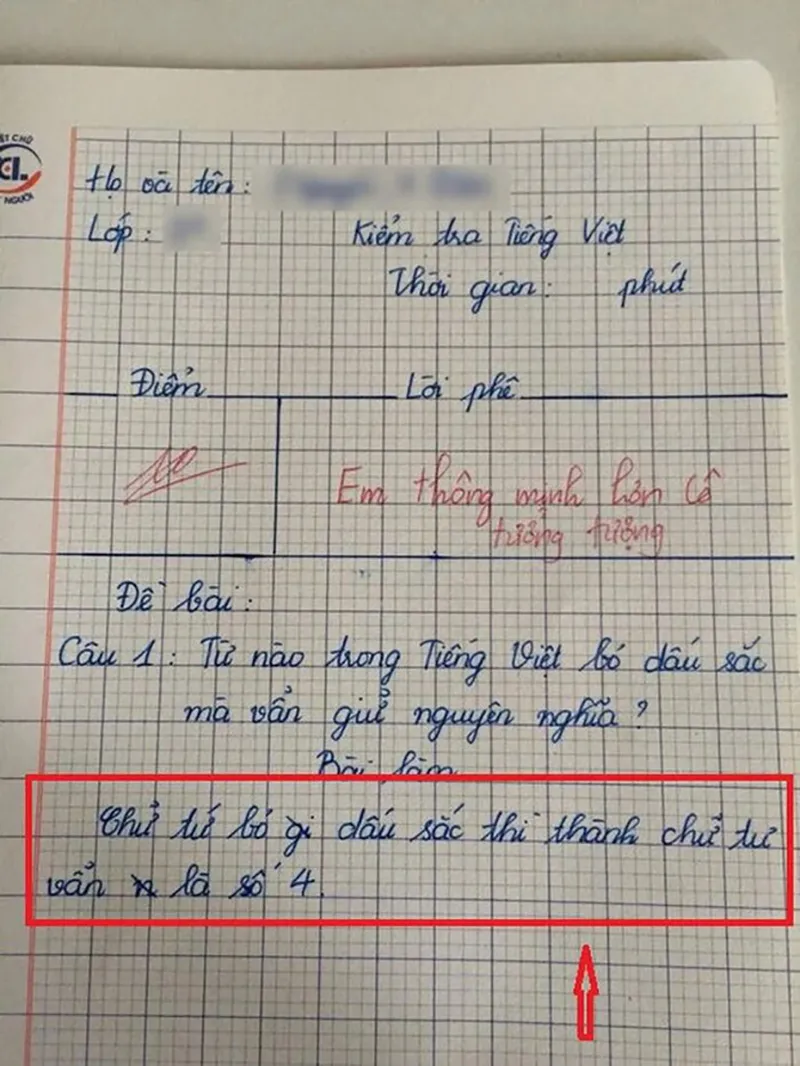 ẾT CHỮ
CL
NGƯỜI
Họ và tên:
Lớp:
Kiểm tra Tiếng Việt
Thời gian: phút
Điểm
Lời phê
10
Em thông minh hơn cô
tưởng tượng
Đề bài:
Câu 1: Từ nào trong Tiếng Việt bỏ dấu sắc
mà vẫn giữ nguyên nghĩa?
Bài làm
Chử tứ bỏ gi dấu sắc thì thành chử tư
vẩn là số 4.